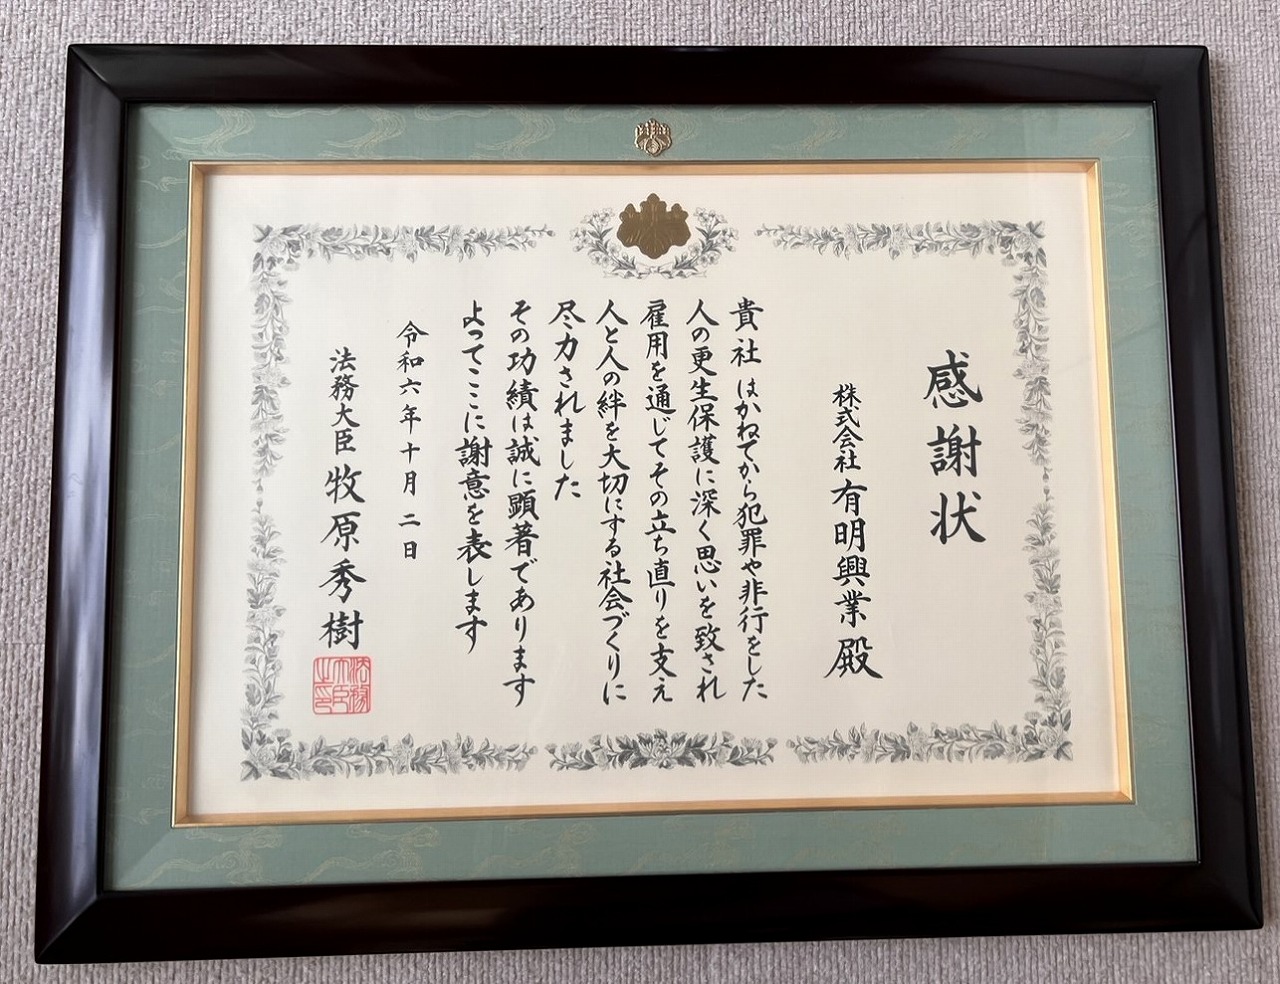 感謝状
株式会社有明興業殿
貴社はかねてから犯罪や非行をした
人の更生保護に深く思いを致され
雇用を通じてその立ち直りを支え
人と人の絆を大切にする社会づくりに
尽力されました
その功績は誠に顕著であります
よってここに謝意を表します
令和六年十月二日
法務大臣牧原秀樹
法務大臣之印